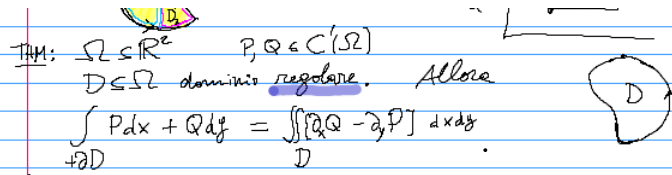 D₂
THM: Ω ⊆ ℝ² P, Q ∈ C¹(Ω)
D ⊆ Ω dominio regolare. Allora
D
∫ Pdx + Qdy = ∬[∂ₓQ - ∂ᵧP] dxdy
+∂D D